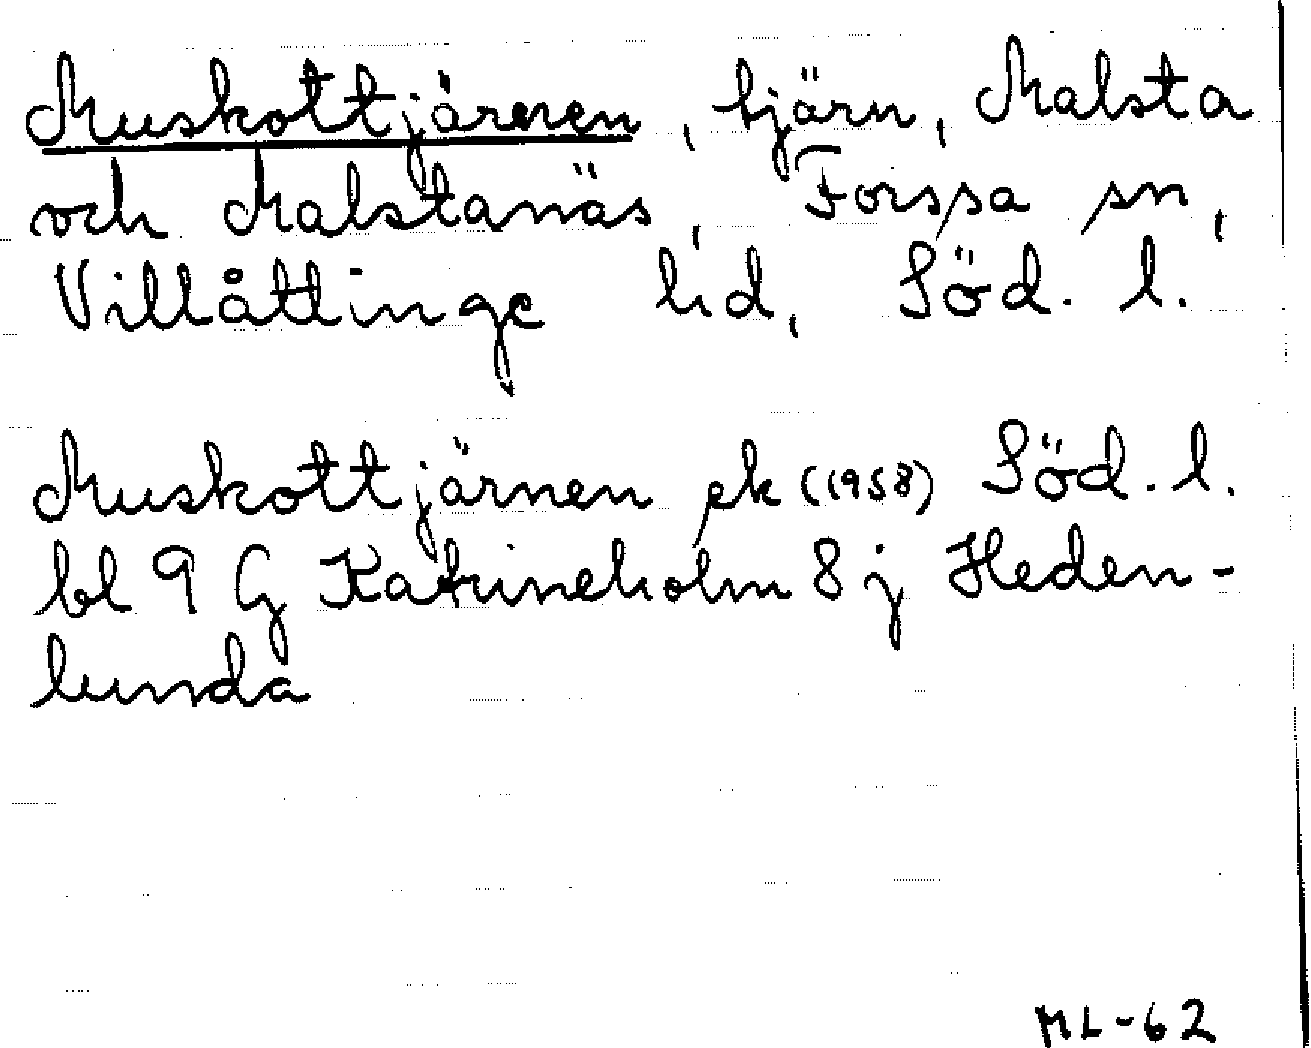 Muskottjärnen, tjärn, Malsta
och Malstanäs, Forssa sn,
Villåttinge hd, Söd. l.
Muskottjärnen ek (1958) Söd. l.
bl 9 G Katrineholm 8 j Heden-
lunda
ML-62